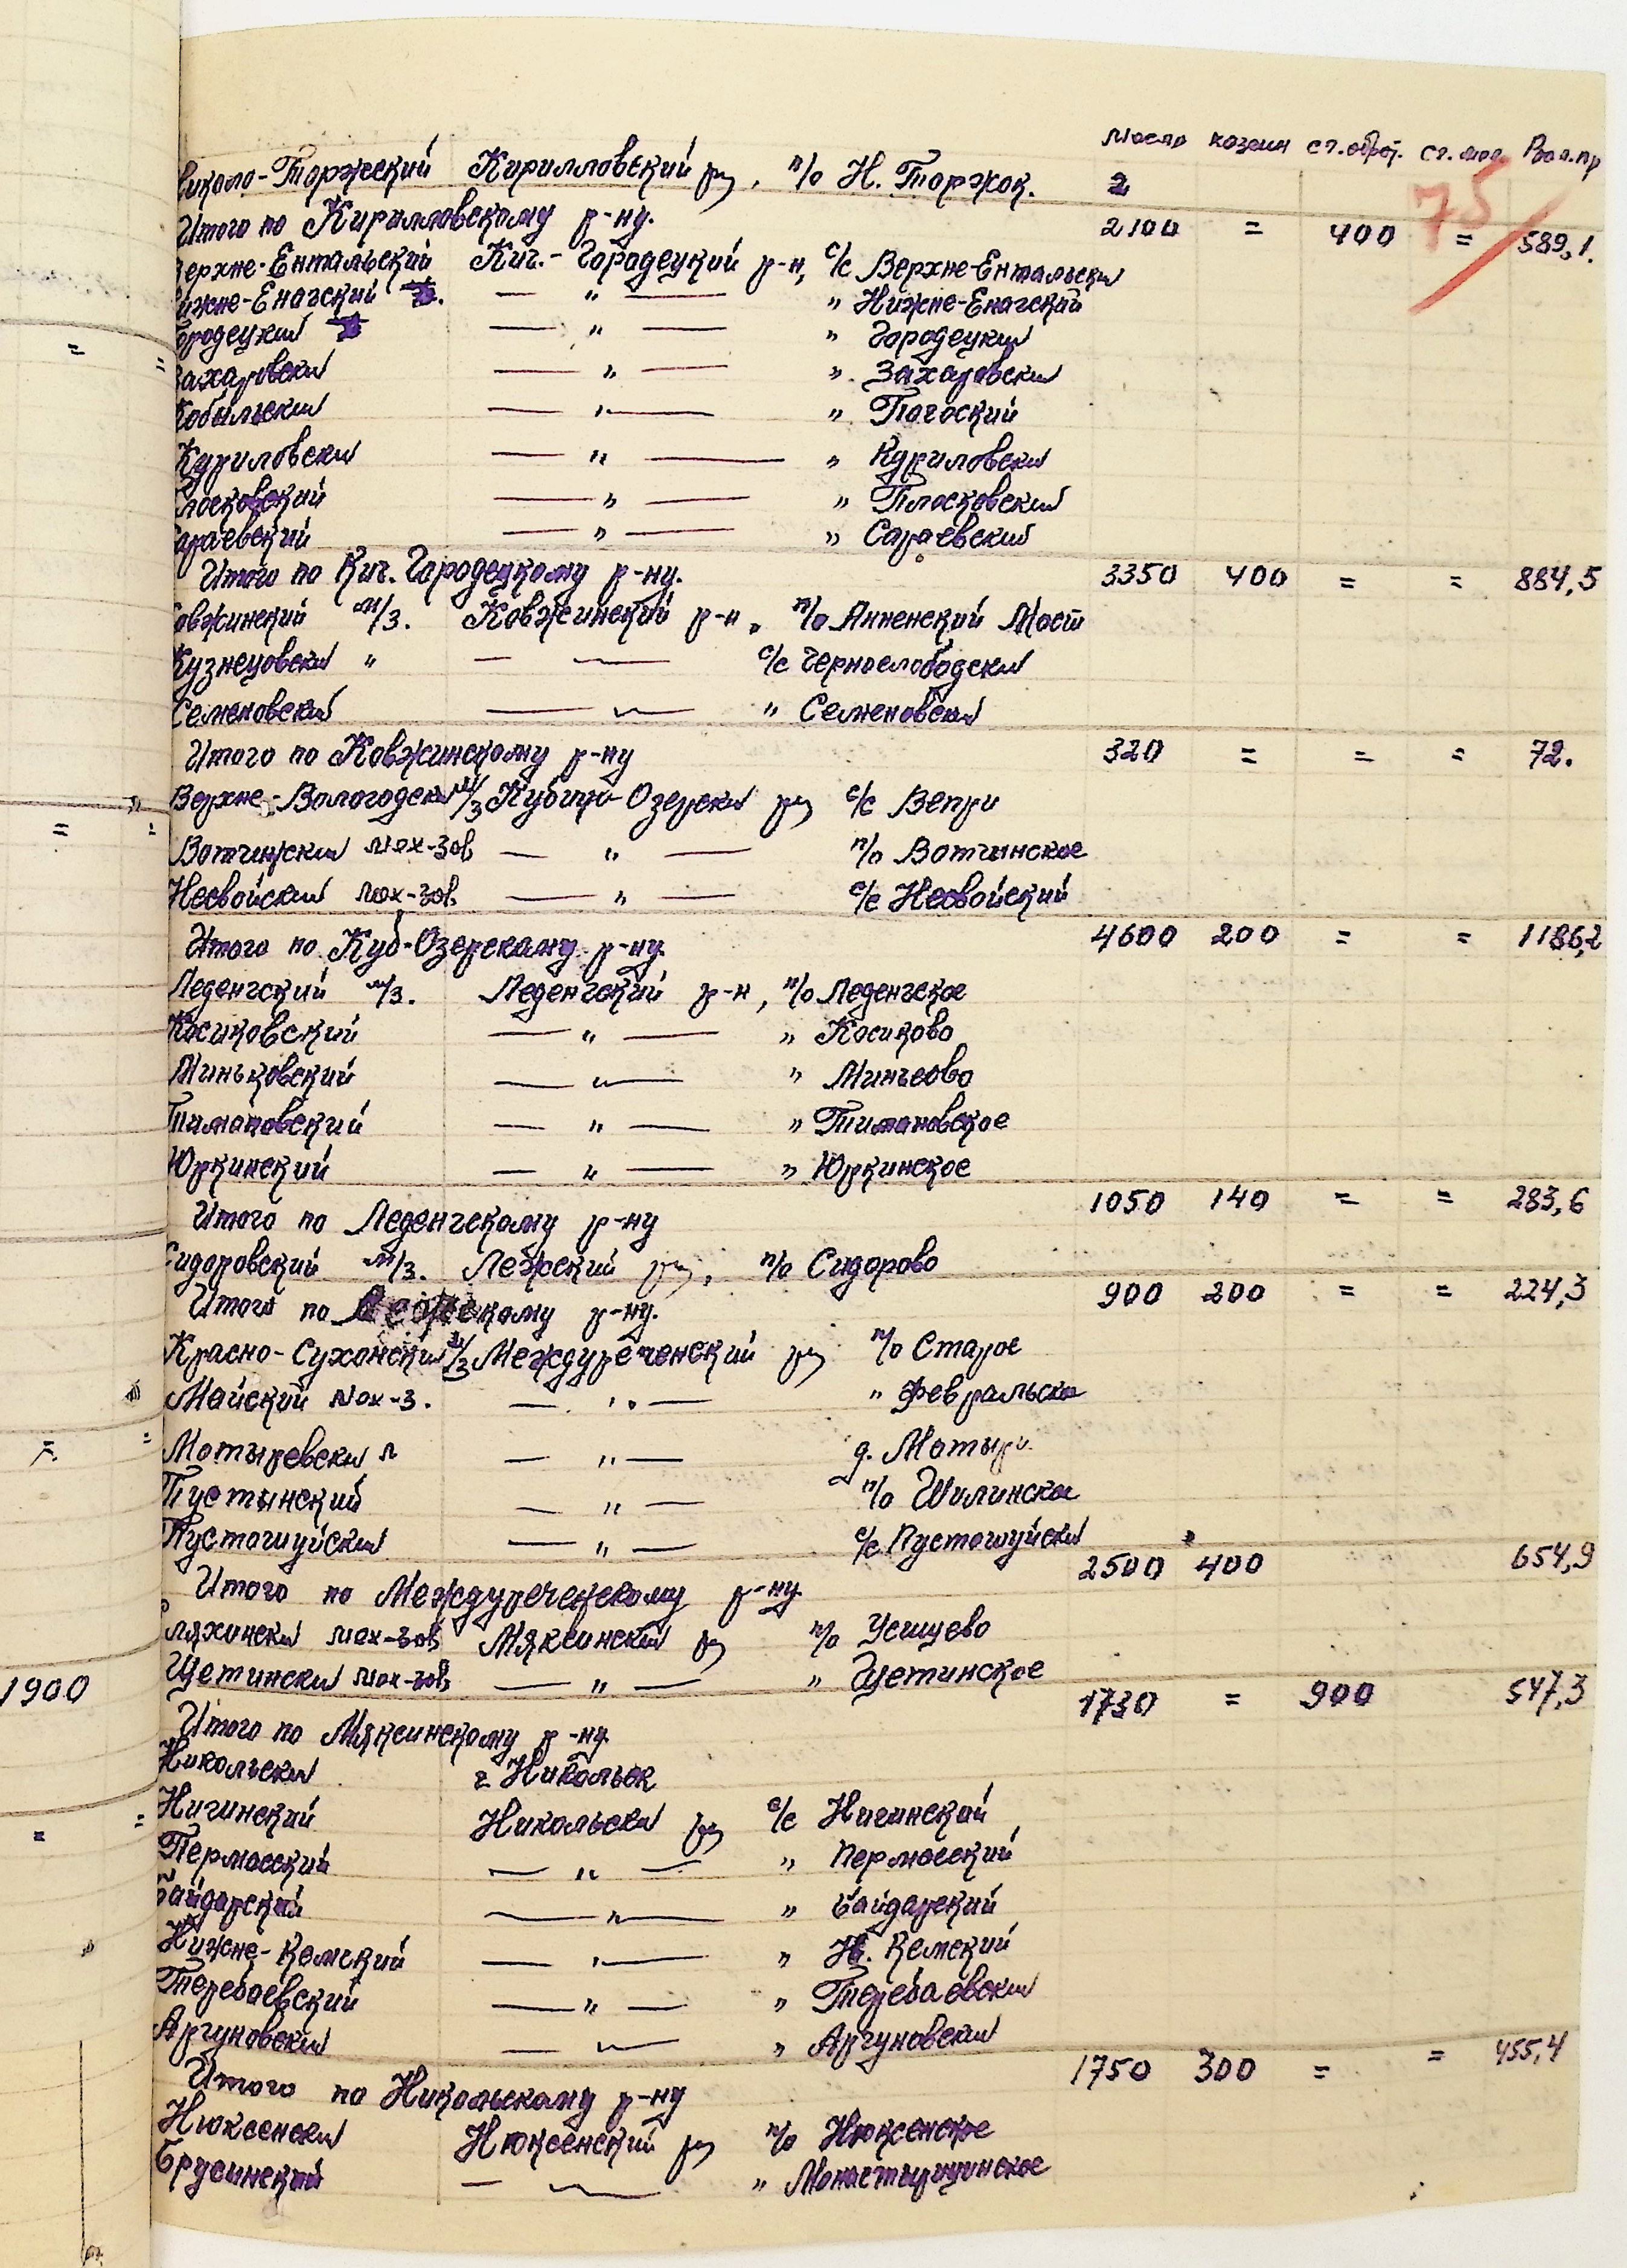 Масло казеин ст.обрат. ст. мол. Вал.пр
75
Николо-Торжский Кирилловский рн, п/о Н. Торжок. 2
Итого по Кирилловскому р-ну. 2100 = 400 = 589,1.
Верхне-Ентальский Кич.-Городецкий р-н, с/с Верхне-Ентальски
Нижне-Енагский — " — " Нижне-Енагский
Городецкий — " — " Городецкий
Захаровски — " — " Захаровски
Кобыльски — " — " Погоский
Куриловски — " — " Куриловски
Плосковский — " — " Плосковский
Сараевский — " — " Сараевский
Итого по Кич. Городецкому р-ну. 3350 400 = = 884,5
Ковжинский м/з. Ковжинский р-н, п/о Анненский Мост
Кузнецовски " — с/с Чернослободски
Семеновски — " Семеновски
Итого по Ковжинскому р-ну 320 = = = 72.
Верхне-Вологодски м/з Кубино-Озерски рн с/с Вепри
Вотчински мех-зав — " — п/о Вотчинское
Несвойски мех-зав. — " — с/с Несвойский
Итого по Куб-Озерскому р-ну. 4600 200 = = 1186,2
Леденгский м/з. Леденгский р-н, п/о Леденгское
Косиковский — " — " Косиково
Миньковский — " — " Миньково
Тимановский — " — " Тимановское
Юркинский — " — " Юркинское
Итого по Леденгскому р-ну 1050 140 = = 283,6
Сидоровский м/з. Лежский рн, п/о Сидорово
Итого по Лежскому р-ну. 900 200 = = 224,3
Красно-Сухонски м/з Междуреченский рн п/о Старое
Майский мех-з. — " — " Февральска
Мотыревски — " — д. Мотыри
Пустынский — " — п/о Шилинска
Пустошуйски — " — с/с Пустошуйски
Итого по Междуреченскому р-ну. 2500 400 654,9
Гляхински мех-зав Мяксински рн п/о Усищево
1900 Щетински мех-зав — " — " Щетинское
Итого по Мяксинскому р-ну. 1730 = 900 547,3
Никольски г. Никольск
Нигинский Никольски рн с/с Нигинский
Пермасский — " — " Пермасский
Байдарский — " — " Байдарский
Нижне-Кемский — " — " Н. Кемский
Теребаевский — " — " Теребаевски
Аргуновски — " Аргуновски
Итого по Никольскому р-ну 1750 300 = = 455,4
Нюксенски Нюксенский рн п/о Нюксенское
Брусинский — " Монастырщинское